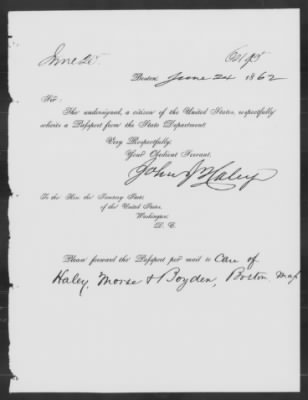 June 25.
Boston, June 24 1862
Sir:
The undersigned, a citizen of the United States, respectfully
solicits a Passport from the State Department.
Very Respectfully,
Your Obedient Servant,
John J Haley
To the Hon. the Secretary State
of the United States,
Washington,
D. C.
Please forward the Passport per mail to Care of
Haley, Morse & Boyden, Boston Mass